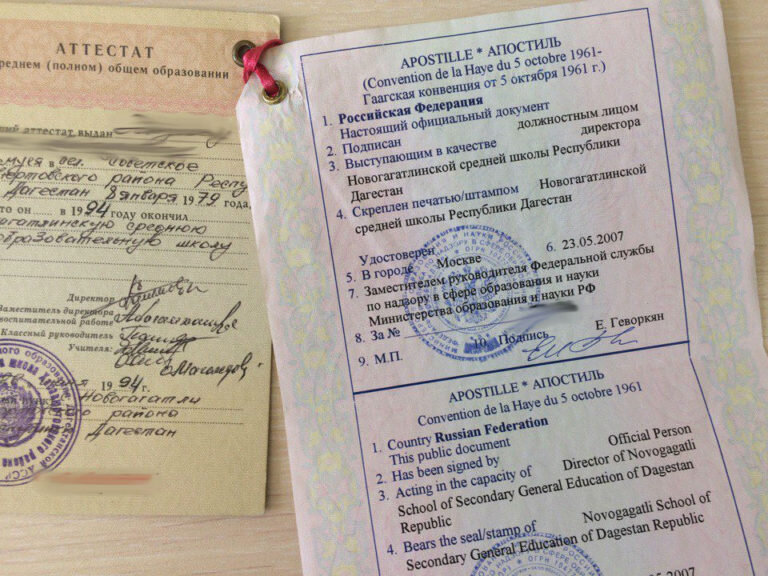 АТТЕСТАТ
среднем (полном) общем образовании
аттестат выдан
в сел. Советское
района Респу
Дагестан 8 января 1979 года,
то он в 1994 году окончил
среднюю
образовательную школу
Директор
Заместитель директора
воспитательной работе
Классный руководитель
Учителя:
1994 г.
Новогагатли
района
Дагестан
APOSTILLE * АПОСТИЛЬ
(Convention de la Haye du 5 octobre 1961-
Гаагская конвенция от 5 октября 1961 г.)
1. Российская Федерация
Настоящий официальный документ
2. Подписан должностным лицом
3. Выступающим в качестве директора
Новогагатлинской средней школы Республики
Дагестан
4. Скреплен печатью/штампом Новогагатлинской
средней школы Республики Дагестан
Удостоверен
5. В городе Москве 6. 23.05.2007
7. Заместителем руководителя Федеральной службы
по надзору в сфере образования и науки
Министерства образования и науки РФ
8. За №
9. М.П. 10. Подпись Е. Геворкян
APOSTILLE * АПОСТИЛЬ
Convention de la Haye du 5 octobre 1961
1. Country Russian Federation
This public document
2. Has been signed by Official Person
3. Acting in the capacity of Director of Novogagatli
School of Secondary General Education of Dagestan
Republic
4. Bears the seal/stamp of Novogagatli School of
Secondary General Education of Dagestan Republic
05.2007